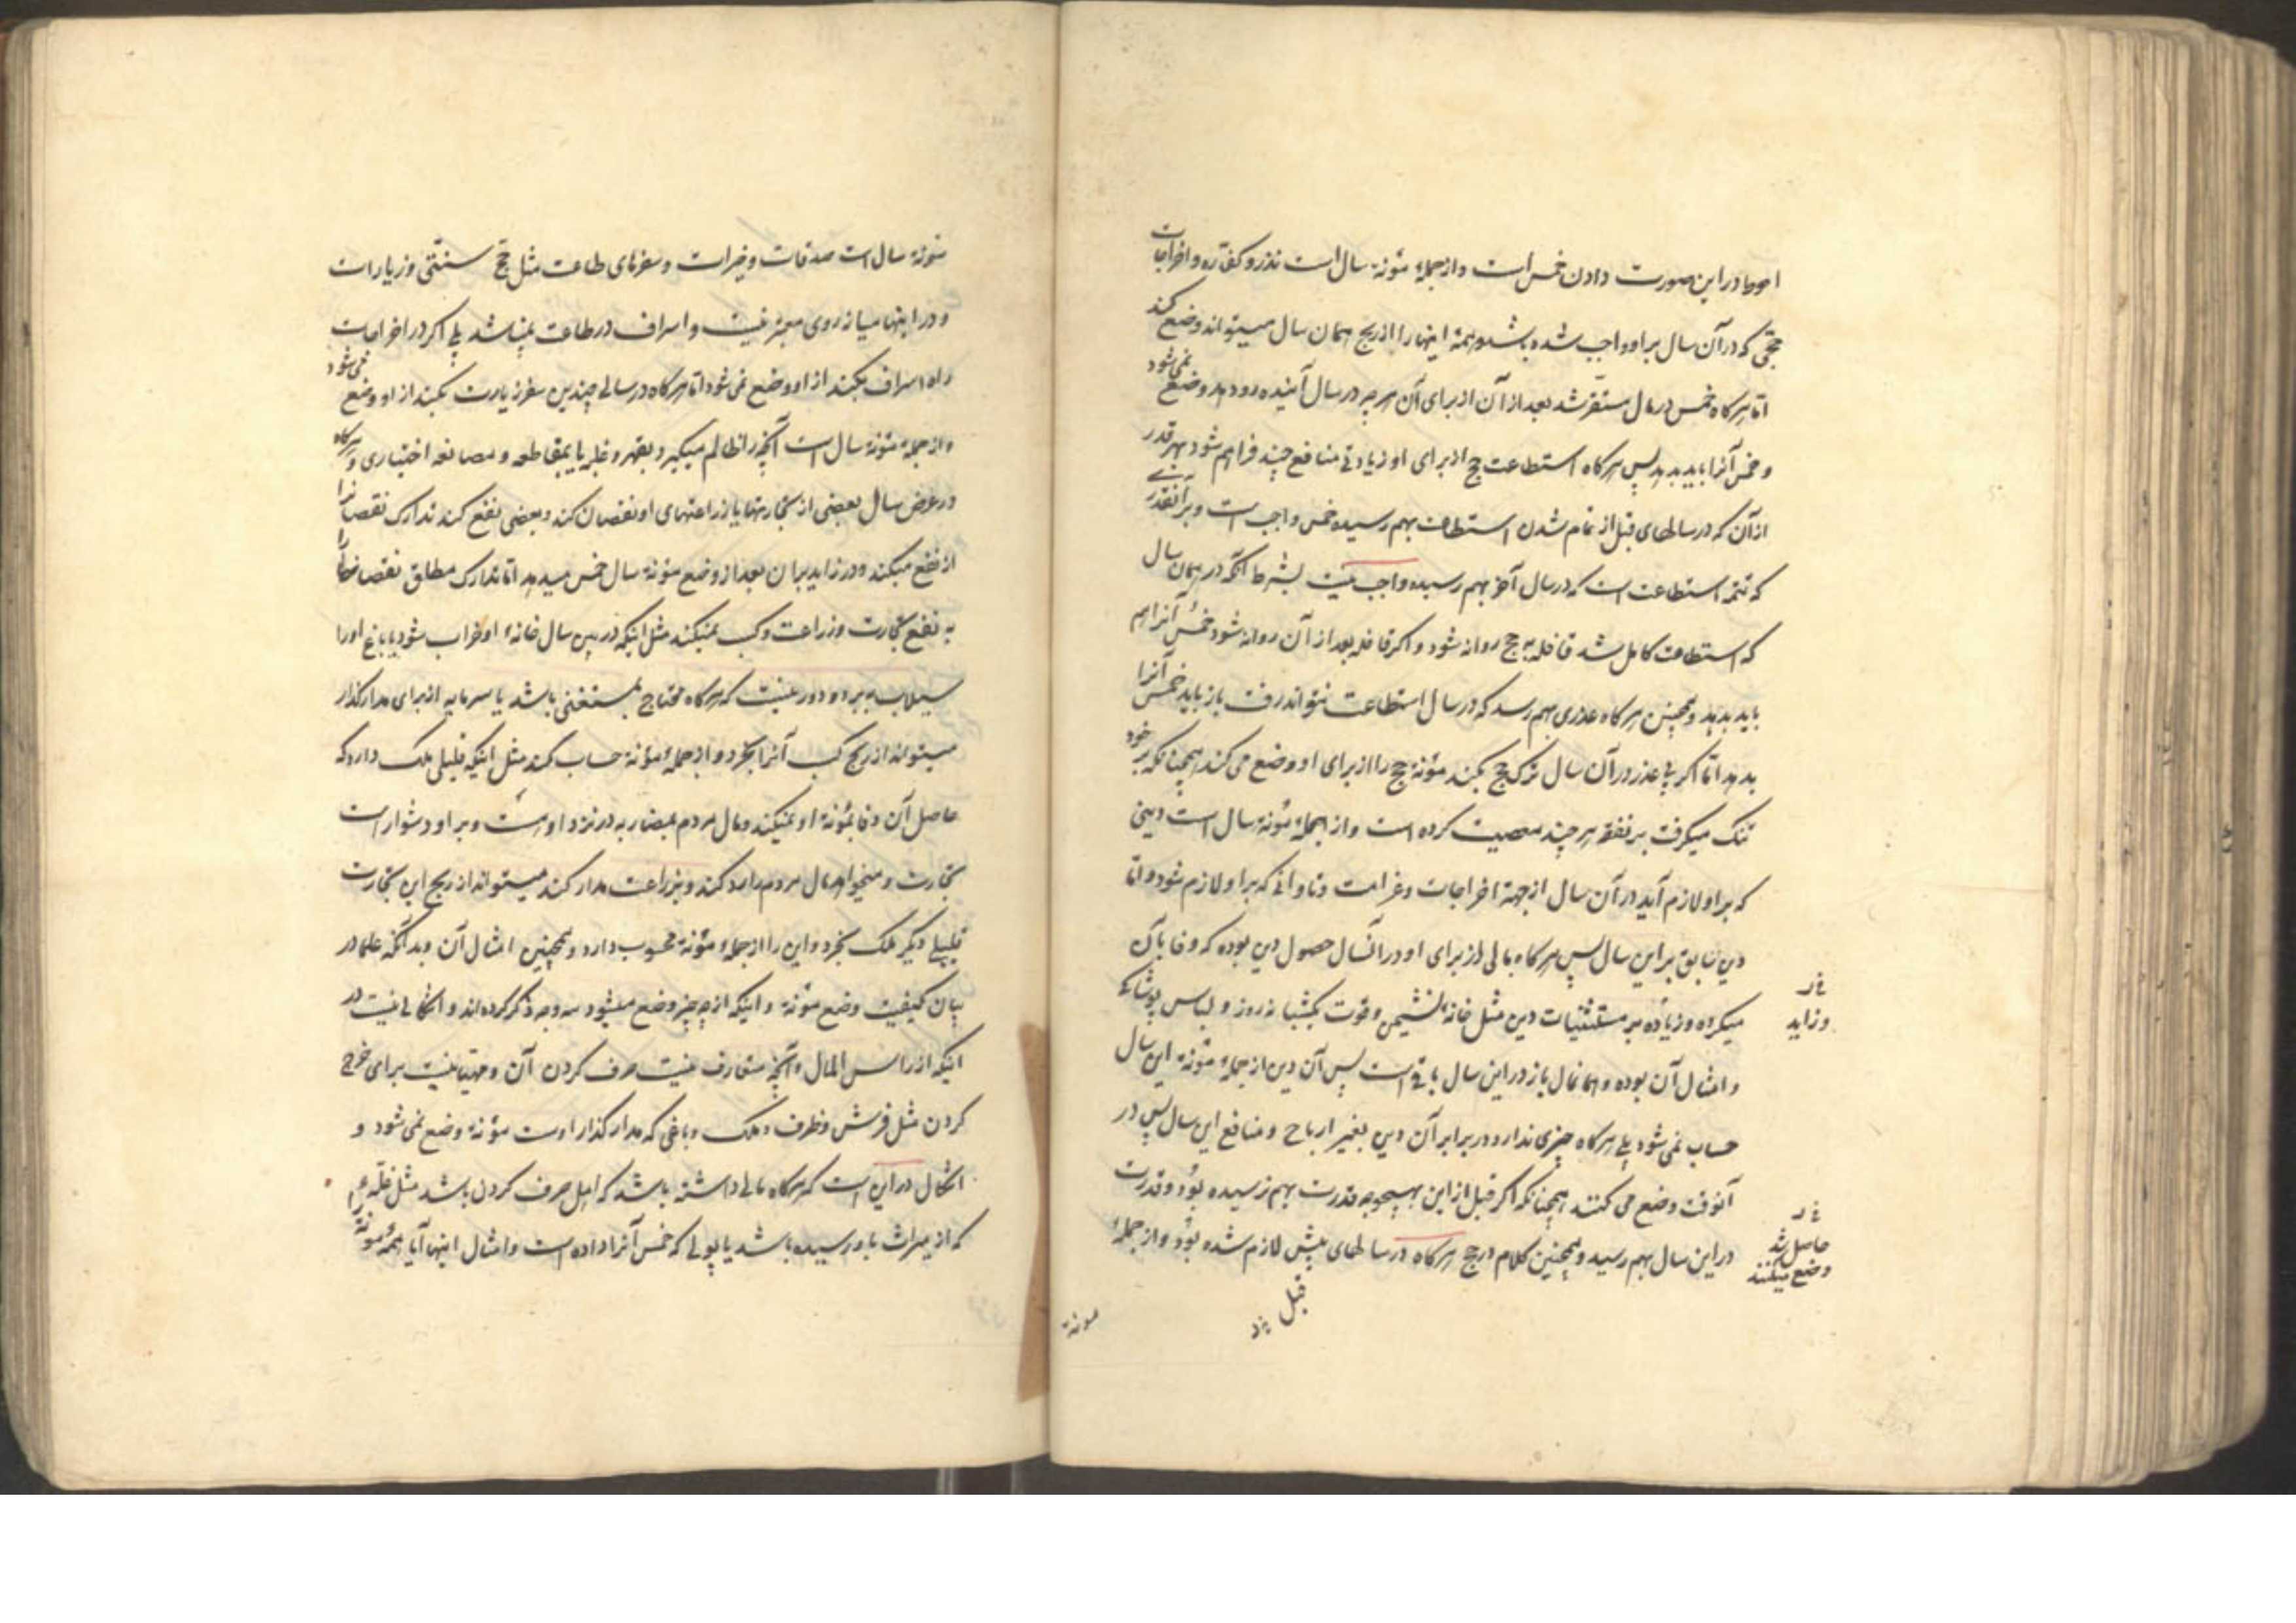 احوط در این صورت دادن خمس است و از جملهٔ مؤنهٔ سال است نذر و کفّاره و اخراجات
حجّی که در آن سال بر او واجب شده باشد و همهٔ اینها را از ربح همان سال میتواند وضع کند
امّا هرگاه خمس در مال مستقر شد بعد از آن از برای آن هر چه در سال آینده رود بدهد وضع نمی‌شود
و خمس آنرا باید بدهد پس هرگاه استطاعت حج از برای او زیادتی منافع چند فراهم شود بهر قدر
از آن که در سالهای قبل از تمام شدن استطاعت بهم رسیده خمس واجب است و بر آنقدر
که تتمهٔ استطاعت است که در سال آخر بهم رسیده واجب نیست بشرط آنکه در همان سال
که استطاعت کامل شد قافله به حج روانه شود و اگر قافله بعد از آن روانه شود خمس آنرا هم
باید بدهد و همچنین هرگاه عذری بهم رسد که در سال استطاعت نتواند رفت باز باید خمس آنرا
بدهد امّا اگر بی عذر در آن سال ترک حج بکند مؤنهٔ حج را از برای او وضع می کند همچنانکه بر خود
تنگ میگرفت بر نفقه هر چند معصیت کرده است و از جملهٔ مؤنهٔ سال است دینی
که بر او لازم آید در آن سال از جههٔ اخراجات و غرامت و تاوانی که بر او لازم شود و امّا
دین سابق بر این سال پس هرگاه مالی از برای او در آنسال حصول دین بوده که وفا بآن
میکرده و زیاده بر مستثنیات دین مثل خانهٔ نشیمن و قوت یکشبانه روز و لباس پوشاکی
و زاید
و امثال آن بوده و همانمال باز در این سال باقی است پس آن دین از جملهٔ مؤنهٔ این سال
حساب نمی شود بلی هرگاه چیزی ندارد در برابر آن دین بغیر ارباح و منافع این سال پس در
آنوقت وضع می کنند همچنانکه اگر قبل از این بهیچوجه قدرت بهم نرسیده بود و قدرت
در این سال بهم رسید و همچنین کلام در حج هرگاه در سالهای پیش لازم شده بود و از جملهٔ
حاصل شد
وضع میکنند
قبل
مونه
مؤنهٔ سال است صدقات و خیرات و سفرهای طاعت مثل حجّ سنتی و زیارات
و در اینها میانه روی معتبر نیست و اسراف در طاعت نمیباشد بلی اگر در اخراجات
راه اسراف بکند از او وضع نمی شود امّا هرگاه در سالی چندین سفر زیارت بکند از او وضع می شود
و از جملهٔ مؤنهٔ سال است آنچه را ظالم میگیرد بقهر و غلبه یا بمقاطعه و مصانعه اختیاری و هرگاه
در عرض سال بعضی از تجارتها یا زراعتهای او نقصان کند و بعضی نفع کند تدارک نقصانرا
از نفع میکند و در زاید بر آن بعد از وضع مؤنهٔ سال خمس میدهد امّا تدارک مطلق نقصانها را
به نفع تجارت و زراعت و کسب نمیکند مثل اینکه در بین سال خانهٔ او خراب شود یا باغ او را
سیلاب ببرد و دور نیست که هرگاه محتاج بمستغنی باشد یا سرمایه از برای مدار گذار
میتواند از ربح کسب آنرا بخرد و از جملهٔ مؤنه حساب کند مثل اینکه قلیلی ملک دارد که
حاصل آن وفا بمؤنهٔ او نمیکند و مال مردم بمضاربه در نزد اوست و بر او دشوار است
تجارت و میخواهد مال مردم را رد کند و بزراعت مدار کند میتواند از ربح این تجارت
قلیلی دیگر ملک بخرد و این را از جملهٔ مؤنه محسوب دارد و همچنین امثال آن و بدانکه علما در
بیان کیفیت وضع مؤنه و اینکه از چه چیز وضع میشود سه وجه ذکر کرده اند و اشکالی نیست در
اینکه از راس المال و آنچه متعارف نیست صرف کردن آن و مهیّا نیست برای خرج
کردن مثل فرش و ظرف و ملک و باغی که مدار گذار اوست مؤنه وضع نمی شود و
اشکال در این است که هرگاه مالی داشته باشد که اهل صرف کردن باشد مثل غلّه
که از میراث باو رسیده باشد یا پولی که خمس آنرا داده است و امثال اینها آیا همهٔ مؤنه را